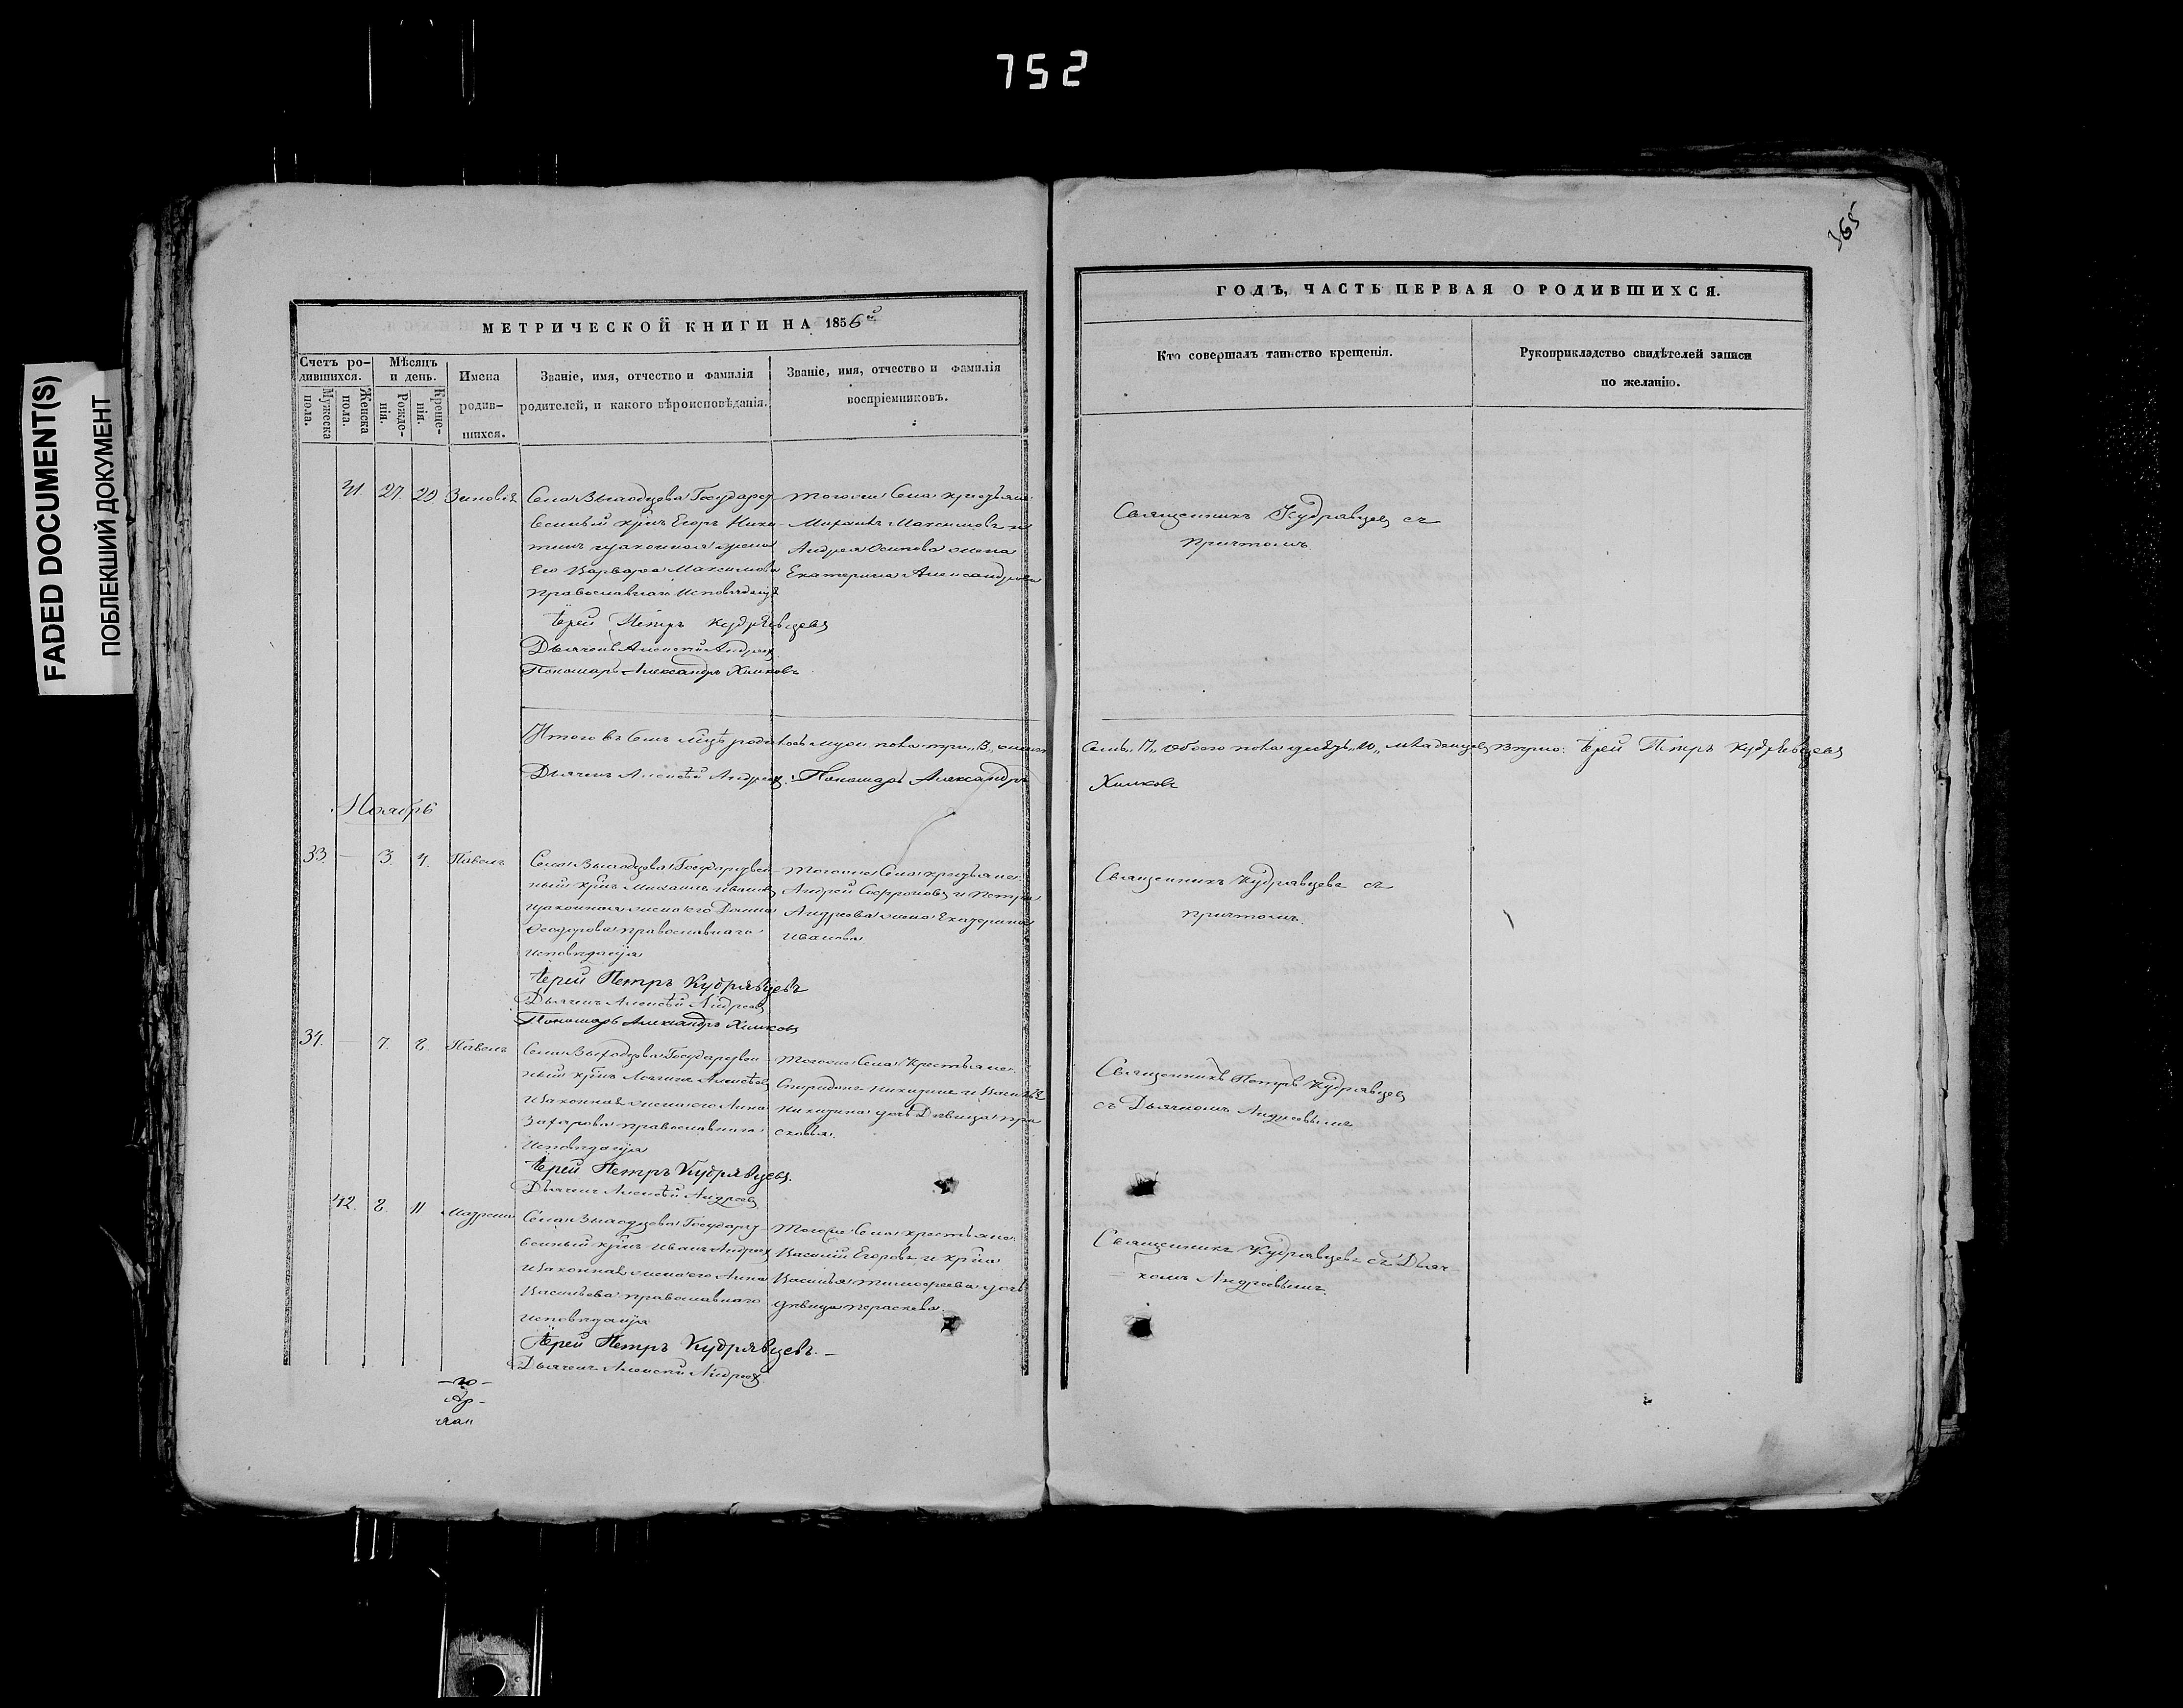 752
FADED DOCUMENT(S)
ПОБЛЕКШИЙ ДОКУМЕНТ
365
МЕТРИЧЕСКОЙ КНИГИ НА 1856й
Счетъ ро-
дившихся.
Мужеска
пола.
Женска
пола.
Мѣсяцъ
и день.
Рожде-
нія.
Креще-
нія.
Имена
родив-
шихся.
Званіе, имя, отчество и фамилія
родителей, и какого вѣроисповѣданія.
Званіе, имя, отчество и фамилія
воспріемниковъ.
ГОДЪ, ЧАСТЬ ПЕРВАЯ О РОДИВШИХСЯ.
Кто совершалъ таинство крещенія.
Рукоприкладство свидѣтелей записи
по желанію.
27.
Села Государст-
венный крнъ Егоръ Ники-
тинъ изаконная жена
Его Варвара Максимова
православнаго исповѣданія
Іерей Петръ Кудрявцевъ
Дьячекъ Алексѣй Андреевъ
Пономарь Александръ Хилковъ
тогоже Села крестьяне
Михаилъ Максимовъ и
Андрея Осипова жена
Екатерина Александрова
Священникъ Кудрявцевъ съ
причтомъ
Итого въ семъ мцѣ родилось муж. пола три "3"
семь "7" обоего пола "10" младенцевъ Іерей Петръ Кудрявцевъ
Дьячекъ Алексѣй Андреевъ. Пономарь Александръ
Хилковъ
Ноябрь
33. — 3. 4. Павелъ
Села Государствен-
ный крнъ Михаилъ Ивановъ
изаконная жена его Домна
Ѳеодорова православнаго
исповѣданія
Іерей Петръ Кудрявцевъ
Дьячекъ Алексѣй Андреевъ
Пономарь Александръ Хилковъ
тогоже Села крестьяне:
Андрей Софроновъ и Петра
Андреева жена Екатерина
Иванова
Священникъ Кудрявцевъ съ
причтомъ.
34. — 7. 8. Павелъ
Села Государствен-
ный крнъ Алексѣевъ
изаконная жена его Анна
Захарова православнаго
исповѣданія
Іерей Петръ Кудрявцевъ.
Дьячекъ Алексѣй Андреевъ
тогоже Села Крестьяне:
Спиридонъ Никитинъ и
Никитина дочь Дѣвица Пра-
сковья.
Священникъ Петръ Кудрявцевъ
съ Дьячкомъ Андреевымъ
42. 8 11 Матрена
Села Государст-
венный крнъ Иванъ Андреевъ
изаконная жена его Анна
Васильева православнаго
исповѣданія
Іерей Петръ Кудрявцевъ. —
Дьячекъ Алексѣй Андреевъ
тогоже Села крестьяне:
Василій Егоровъ и крна
Василья Тимофеева дочь
дѣвица Параскева.
Священникъ Кудрявцевъ съ Дьяч-
комъ Андреевымъ.